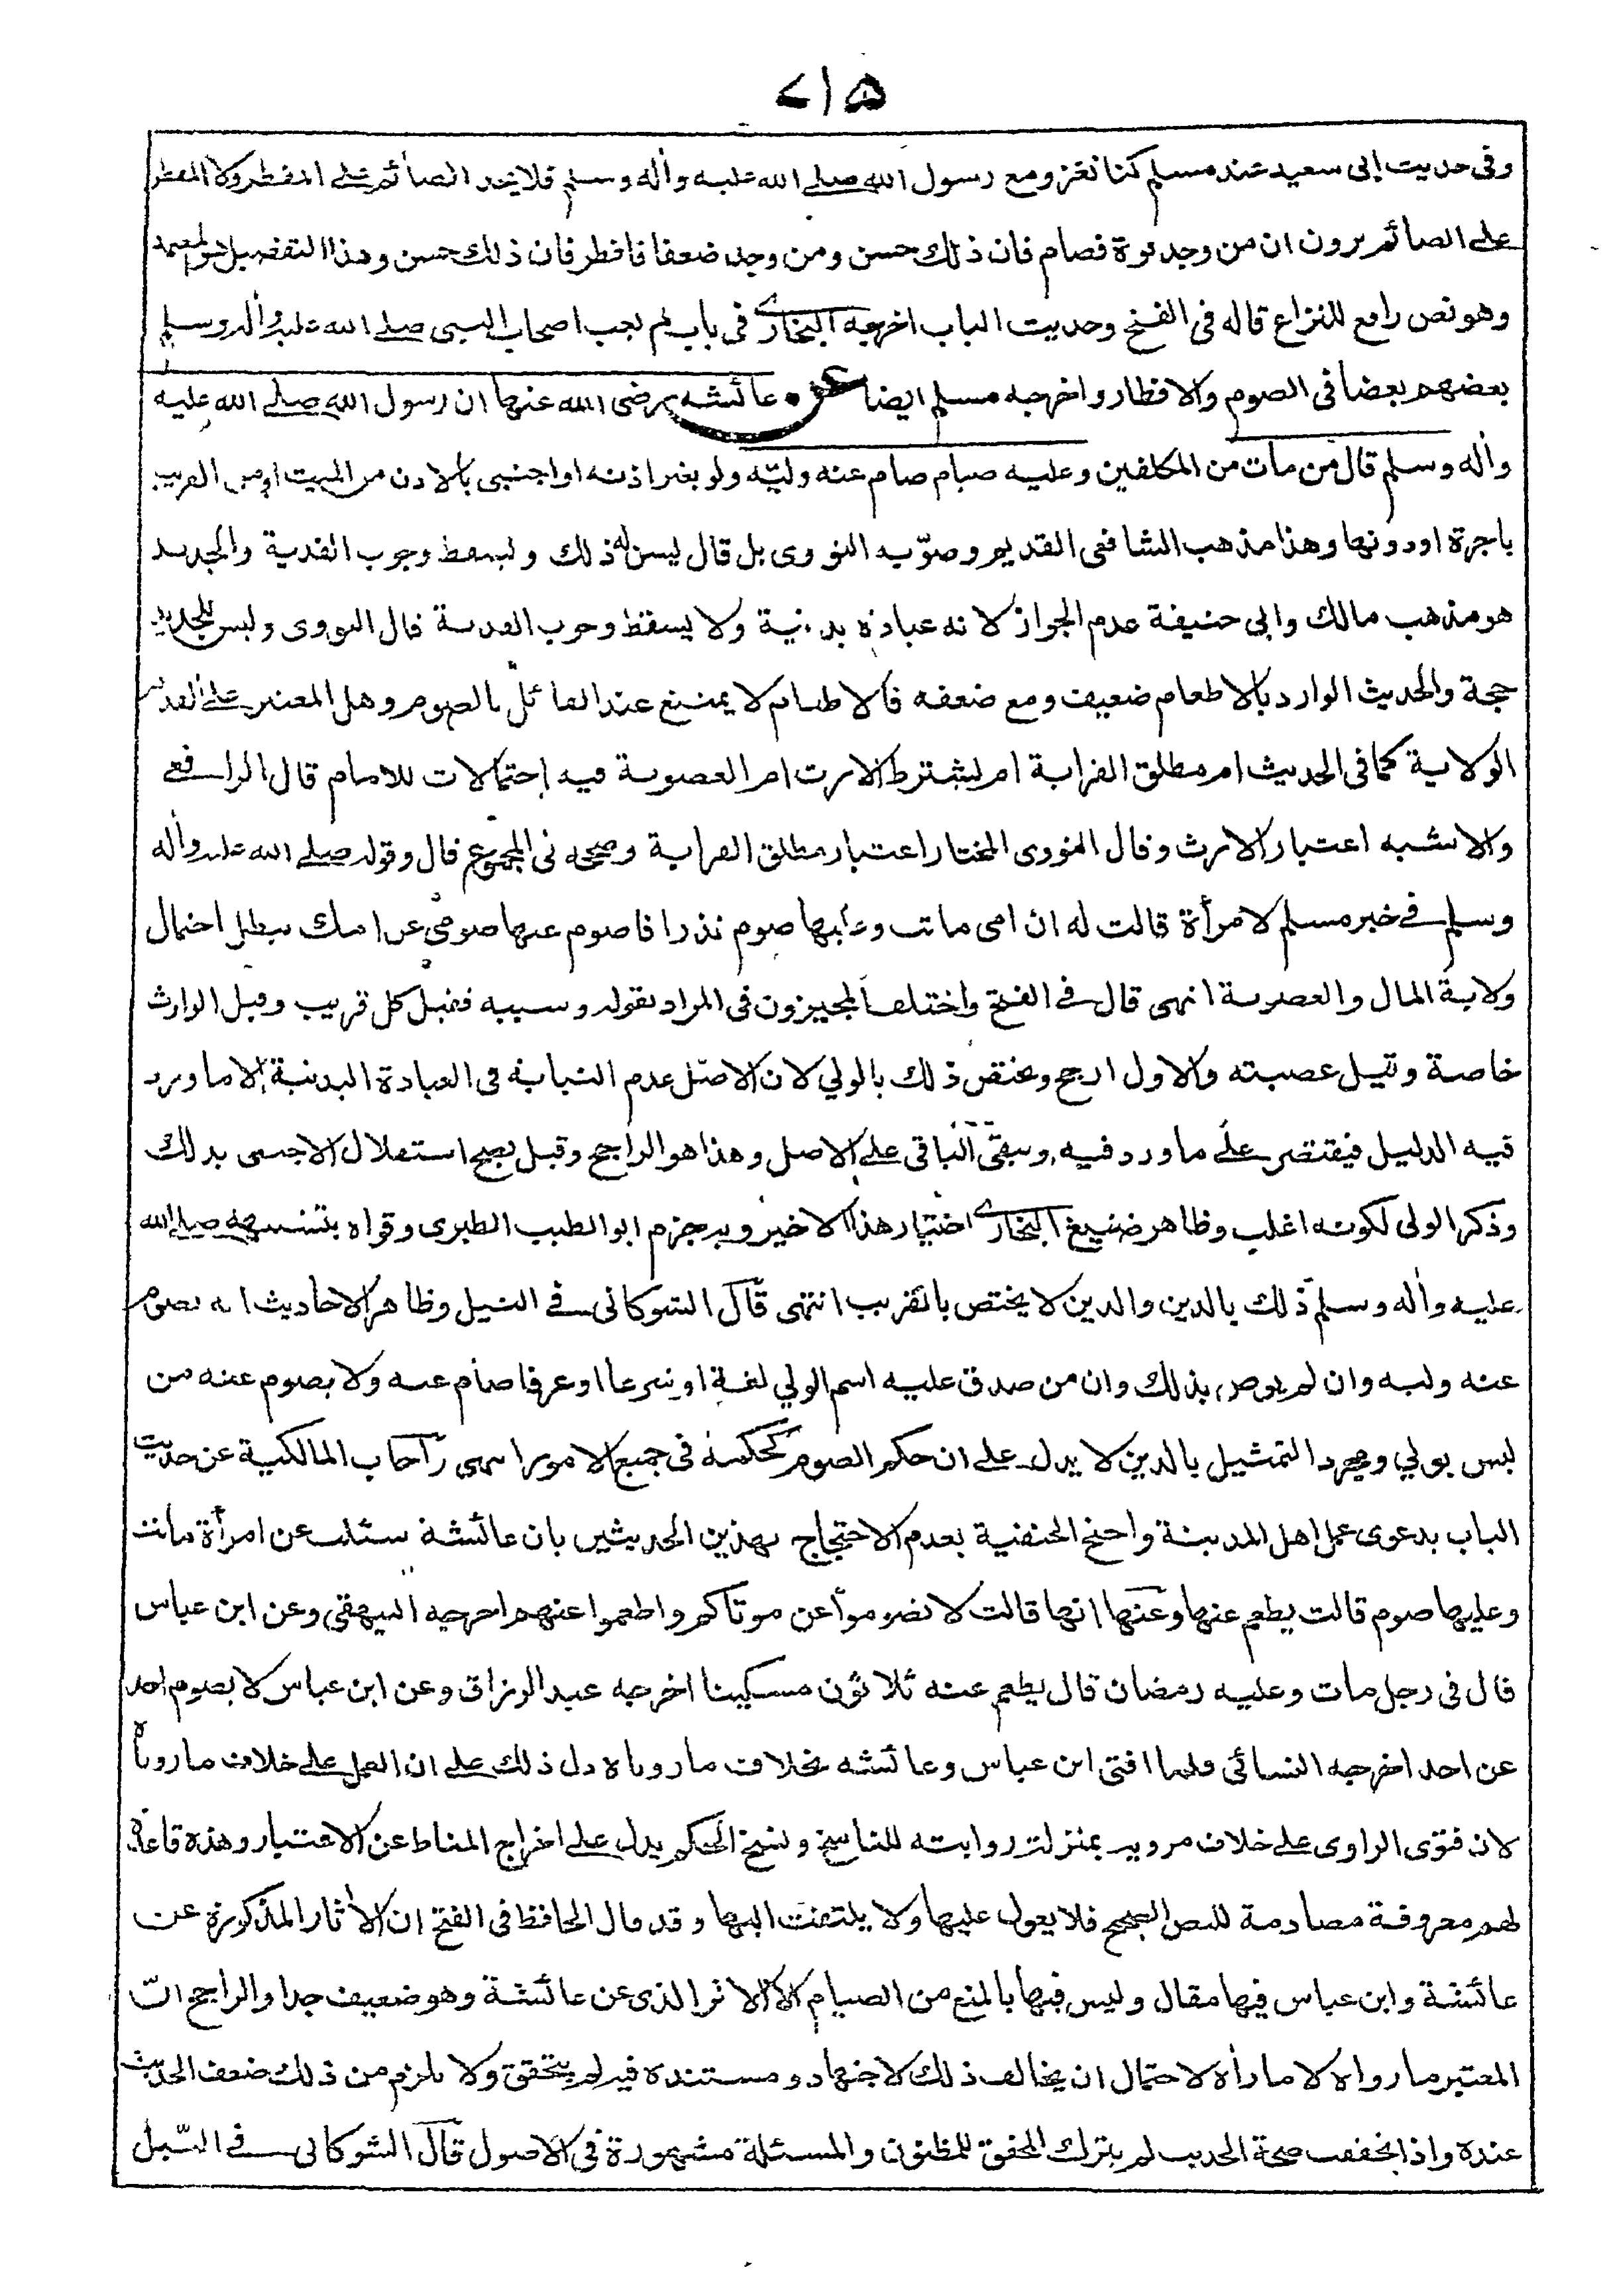 ۷۱۵
وفى حديث ابى سعيد عند مسلم كنا نغزو مع رسول الله صلى الله عليه وأله وسلم فلا يجد الصائم على المفطر ولا المفطر
على الصائم يرون ان من وجد قوة فصام فان ذلك حسن ومن وجد ضعفا فافطر فان ذلك حسن وهذا التفصيل هو المعتمد
وهو نص رافع للنزاع قاله فى الفتح وحديث الباب اخرجه البخارى فى باب لم يعب اصحاب النبى صلى الله عليه وأله وسلم
بعضهم بعضا فى الصوم والافطار واخرجه مسلم ايضا عن عائشه رضى الله عنها ان رسول الله صلى الله عليه
وأله وسلم قال من مات من المكلفين وعليه صيام صام عنه وليّه ولو بغير اذنه او اجنبى بالاذن من الميت او من القريب
باجرة او دونها وهذا مذهب الشافعى القديم وصوّبه النووى بل قال يسن له ذلك ويسقط وجوب الفدية والجديد
هو مذهب مالك وابى حنيفة عدم الجواز لانه عبادة بدنية ولا يسقط وجوب الفدية قال النووى وليس للجديد
حجة والحديث الوارد بالاطعام ضعيف ومع ضعفه فالاطعام لا يمتنع عند القائل بالصوم وهل المعتبر على القديم
الولاية كما فى الحديث ام مطلق القرابة ام يشترط الارث ام العصوبة فيه إحتمالات للامام قال الرافعى
والاشبه اعتبار الارث وقال النووى المختار اعتبار مطلق القرابة وصححه فى المجموع قال وقوله صلى الله عليه وأله
وسلم فى خبر مسلم لامرأة قالت له ان امى ماتت وعليها صوم نذر افاصوم عنها صومى عن امك يبطل احتمال
ولاية المال والعصوبة انتهى قال فى الفتح واختلف المجيزون فى المراد بقوله وسيبه فقيل كل قريب وقيل الوارث
خاصة وقيل عصبته والاول ارجح ويختص ذلك بالولي لان الاصل عدم النيابة فى العبادة البدنية إلا ما ورد
فيه الدليل فيقتصر على ما ورد فيه ويبقى الباقى على الاصل وهذا هو الراجح وقيل يصح استقلال الاجنبى بذلك
وذكر الولى لكونه اغلب وظاهر صنيع البخارى اختيار هذا الاخير وبه جزم ابو الطيب الطبرى وقواه بتشبيهه صلى الله
عليه وأله وسلم ذلك بالدين والدين لا يختص بالقريب انتهى قال الشوكانى فى النيل وظاهر الاحاديث انه يصوم
عنه وليه وان لم يوص بذلك وان من صدق عليه اسم الولي لغة او شرعا او عرفا صام عنه ولا يصوم عنه من
ليس بولي ومجرد التمثيل بالدين لا يدل على ان حكم الصوم كحكمه فى جميع الامور انتهى وآجاب المالكية عن حديث
الباب بدعوى عمل اهل المدينة واحتج الحنفية بعدم الاحتجاج بهذين الحديثين بان عائشة سئلت عن امرأة ماتت
وعليها صوم قالت يطعم عنها وعنها انها قالت لا تصوموا عن موتاكم واطعموا عنهم اخرجه البيهقى وعن ابن عباس
قال فى رجل مات وعليه رمضان قال يطعم عنه ثلاثون مسكينا اخرجه عبد الرزاق وعن ابن عباس لا يصوم احد
عن احد اخرجه النسائى ولما افتى ابن عباس وعائشه بخلاف ما روياه دل ذلك على ان العمل على خلاف ما روياه
لان فتوى الراوى على خلاف مرويه بمنزلة روايته للناسخ ونسخ الحكم يدل على اخراج المناط عن الاعتبار وهذه قاعدة
لهم معروفة مصادمة للنص الصحيح فلا يعول عليها ولا يلتفت اليها وقد قال الحافظ فى الفتح ان الأثار المذكورة عن
عائشة وابن عباس فيها مقال وليس فيها بالمنع من الصيام الا الاثر الذى عن عائشة وهو ضعيف جدا والراجح انّ
المعتبر ما رواه لا ما رأه لاحتمال ان يخالف ذلك لاجتهاد ومستنده فيه لم يتحقق ولا يلزم من ذلك ضعف الحديث
عنده واذا تحققت صحة الحديث لم يترك المحقق للمظنون والمسئلة مشهورة فى الاصول قال الشوكانى فى النّيل